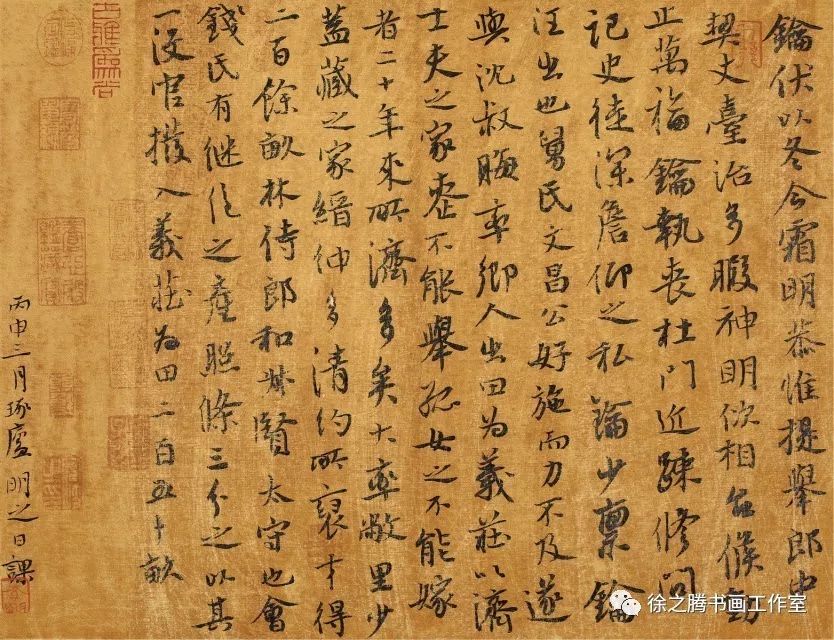 鑰伏以冬令霜明恭惟提舉郎中
契丈臺治多暇神明俶相台候動
止萬福鑰執喪杜門近疎修問
記史徒深詹仰之私鑰少稟鑰
汪出也舅氏文昌公好施而力不及遂
與沈叔晦率鄉人出田為義莊以濟
士夫之家喪不能舉孤女之不能嫁
者二十年來所濟多矣大率敝里少
蓋藏之家縉紳多清約所裒才得
二百餘畝林侍郎和叔賢太守也會
錢氏有繼絕之產照條三分之以其
一沒官撥入義莊為田二百五十畝
丙申三月琢廬明之日課
徐之腾书画工作室